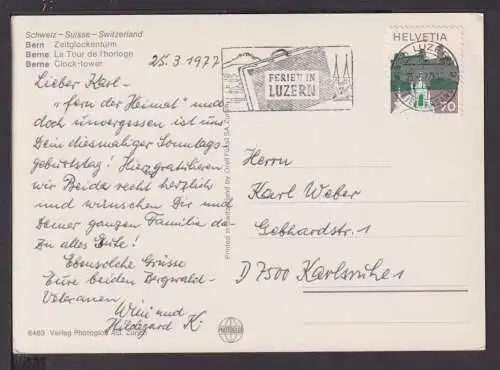 Schweiz – Suisse – Switzerland
Bern Zeitglockenturm
Berne La Tour de l'horloge
Berne Clock-tower
25.3.1977
Lieber Karl –
„fern der Heimat" und
doch unvergessen ist uns
Dein diesmaliger Sonntags-
geburtstag! Hierzu gratulieren
wir Beide recht herzlich
und wünschen Dir und
Deiner ganzen Familie
zu alles Gute!
Ebensolche Grüsse
Eure beiden Bergwald-
Veteranen
Willi und
Hildegard K.
6483 Verlag Photoglob AG, Zürich
Printed in Switzerland by Orell Füssli SA, Zürich
FERIEN IN
LUZERN
HELVETIA
LUZERN
20
Herrn
Karl Weber
Gebhardstr. 1
D 7500 Karlsruhe 1